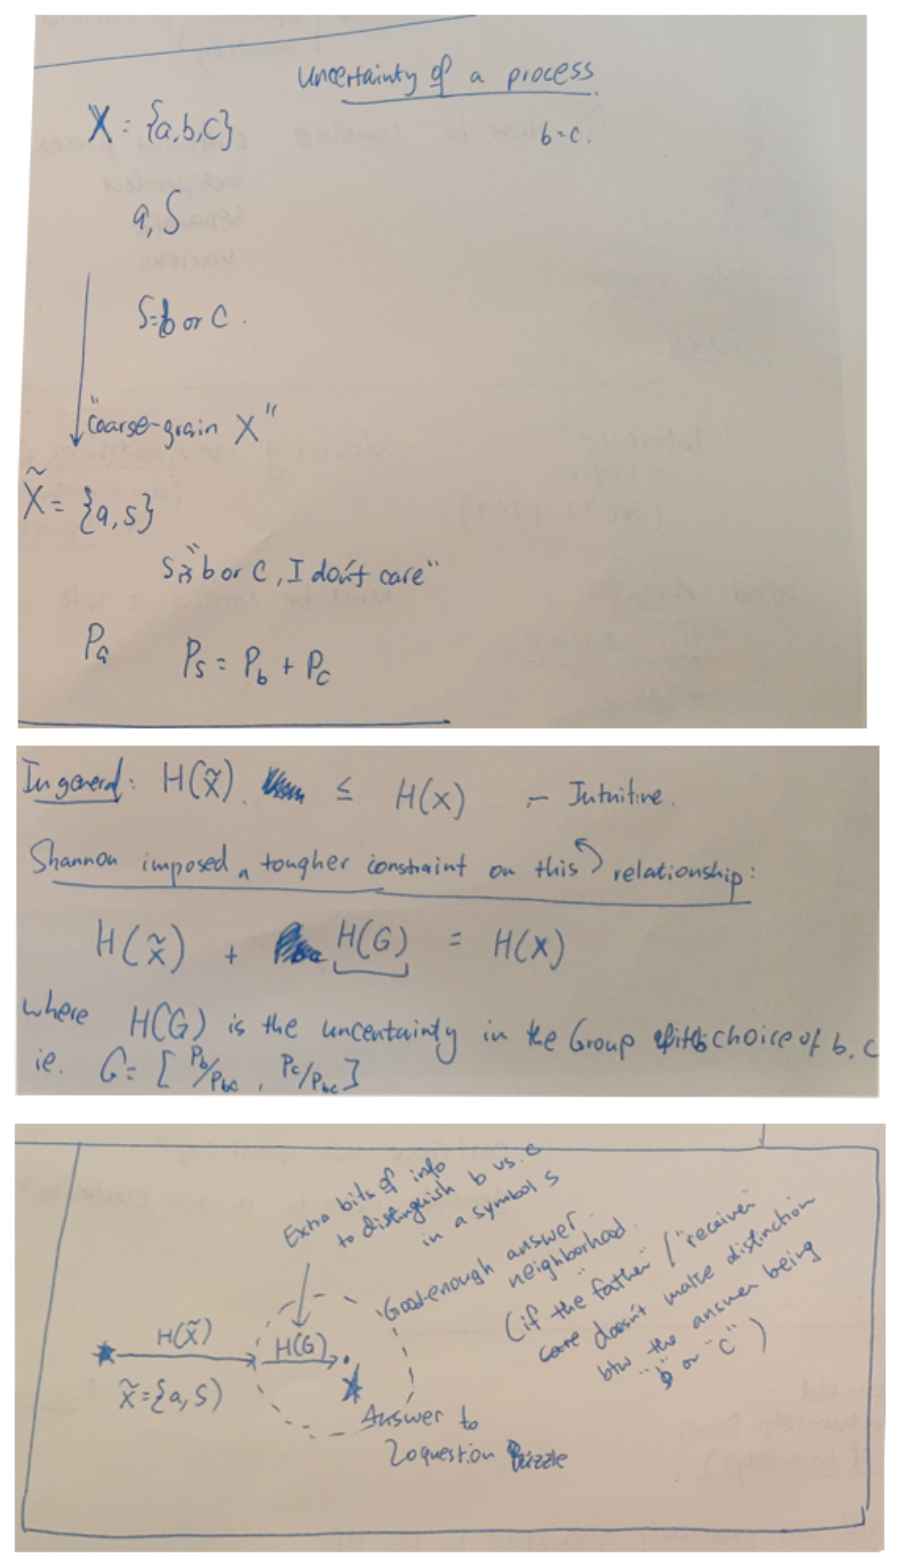 Uncertainty of a process.
X = {a,b,c}
b=c.
a, S
S=b or C.
"coarse-grain X"
X̃ = {a,s}
S is "b or C, I don't care"
Pa
Ps = Pb + Pc
In general: H(X̃) ≤ H(x) - Intuitive.
Shannon imposed a tougher constraint on this relationship:
H(x̃) + H(G) = H(x)
where H(G) is the uncertainty in the Group choice of b, c
ie. G = [Pb/Pbc, Pc/Pbc]
Extra bits of info
to distinguish b vs. c
in a symbol S
"Good enough answer"
neighborhood.
(if the "father"/"receiver"
care doesn't make distinction
btw the answer being
"b" or "c")
H(X̃)
H(G)
X̃ = {a, S)
Answer to
20question Puzzle